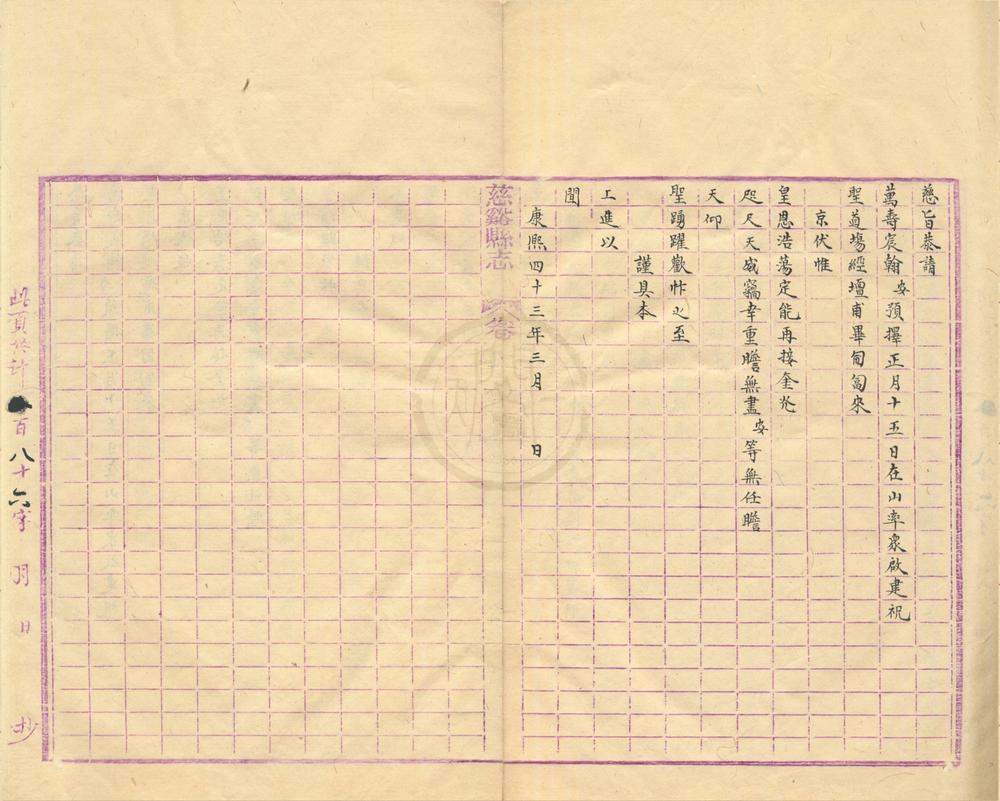 慈旨恭請
萬壽宸翰安預擇正月十五日在山率眾啟建祝
聖道場經壇甫畢匍匐來
京伏惟
皇恩浩蕩定能再接奎光
咫尺天威竊幸重瞻無盡安等無任瞻
天仰
聖踴躍歡忭之至
謹具本
上進以
聞
康熙四十三年三月 日
慈谿縣志 卷
此頁共計 百八十六字 月 日 抄